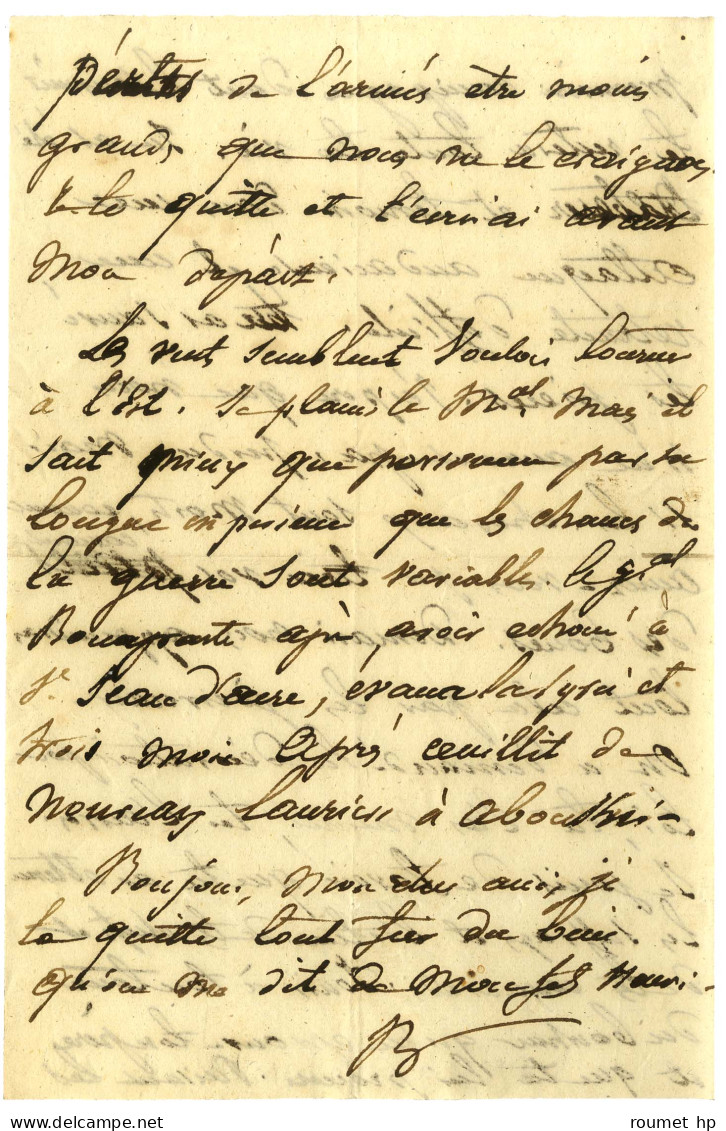 pertes de l'armée être moins
grandes que nous ne le craignons.
Je te quitte et t'écrirai avant
mon départ.
Les vents semblent vouloir tourner
à l'Est. Je plains le Mal. Mais il
sait mieux que personne par sa
longue expérience que les chances de
la guerre sont variables. le gal
Bonaparte après avoir échoué à
St. Jean d'acre, évacua la Syrie et
trois mois après cueillit de
nouveaux lauriers à Aboukir.
Bonjour, mon cher ami, je
te quitte tout fier du bien
qu'on me dit de mon fils Henri.
B
© roumet hp